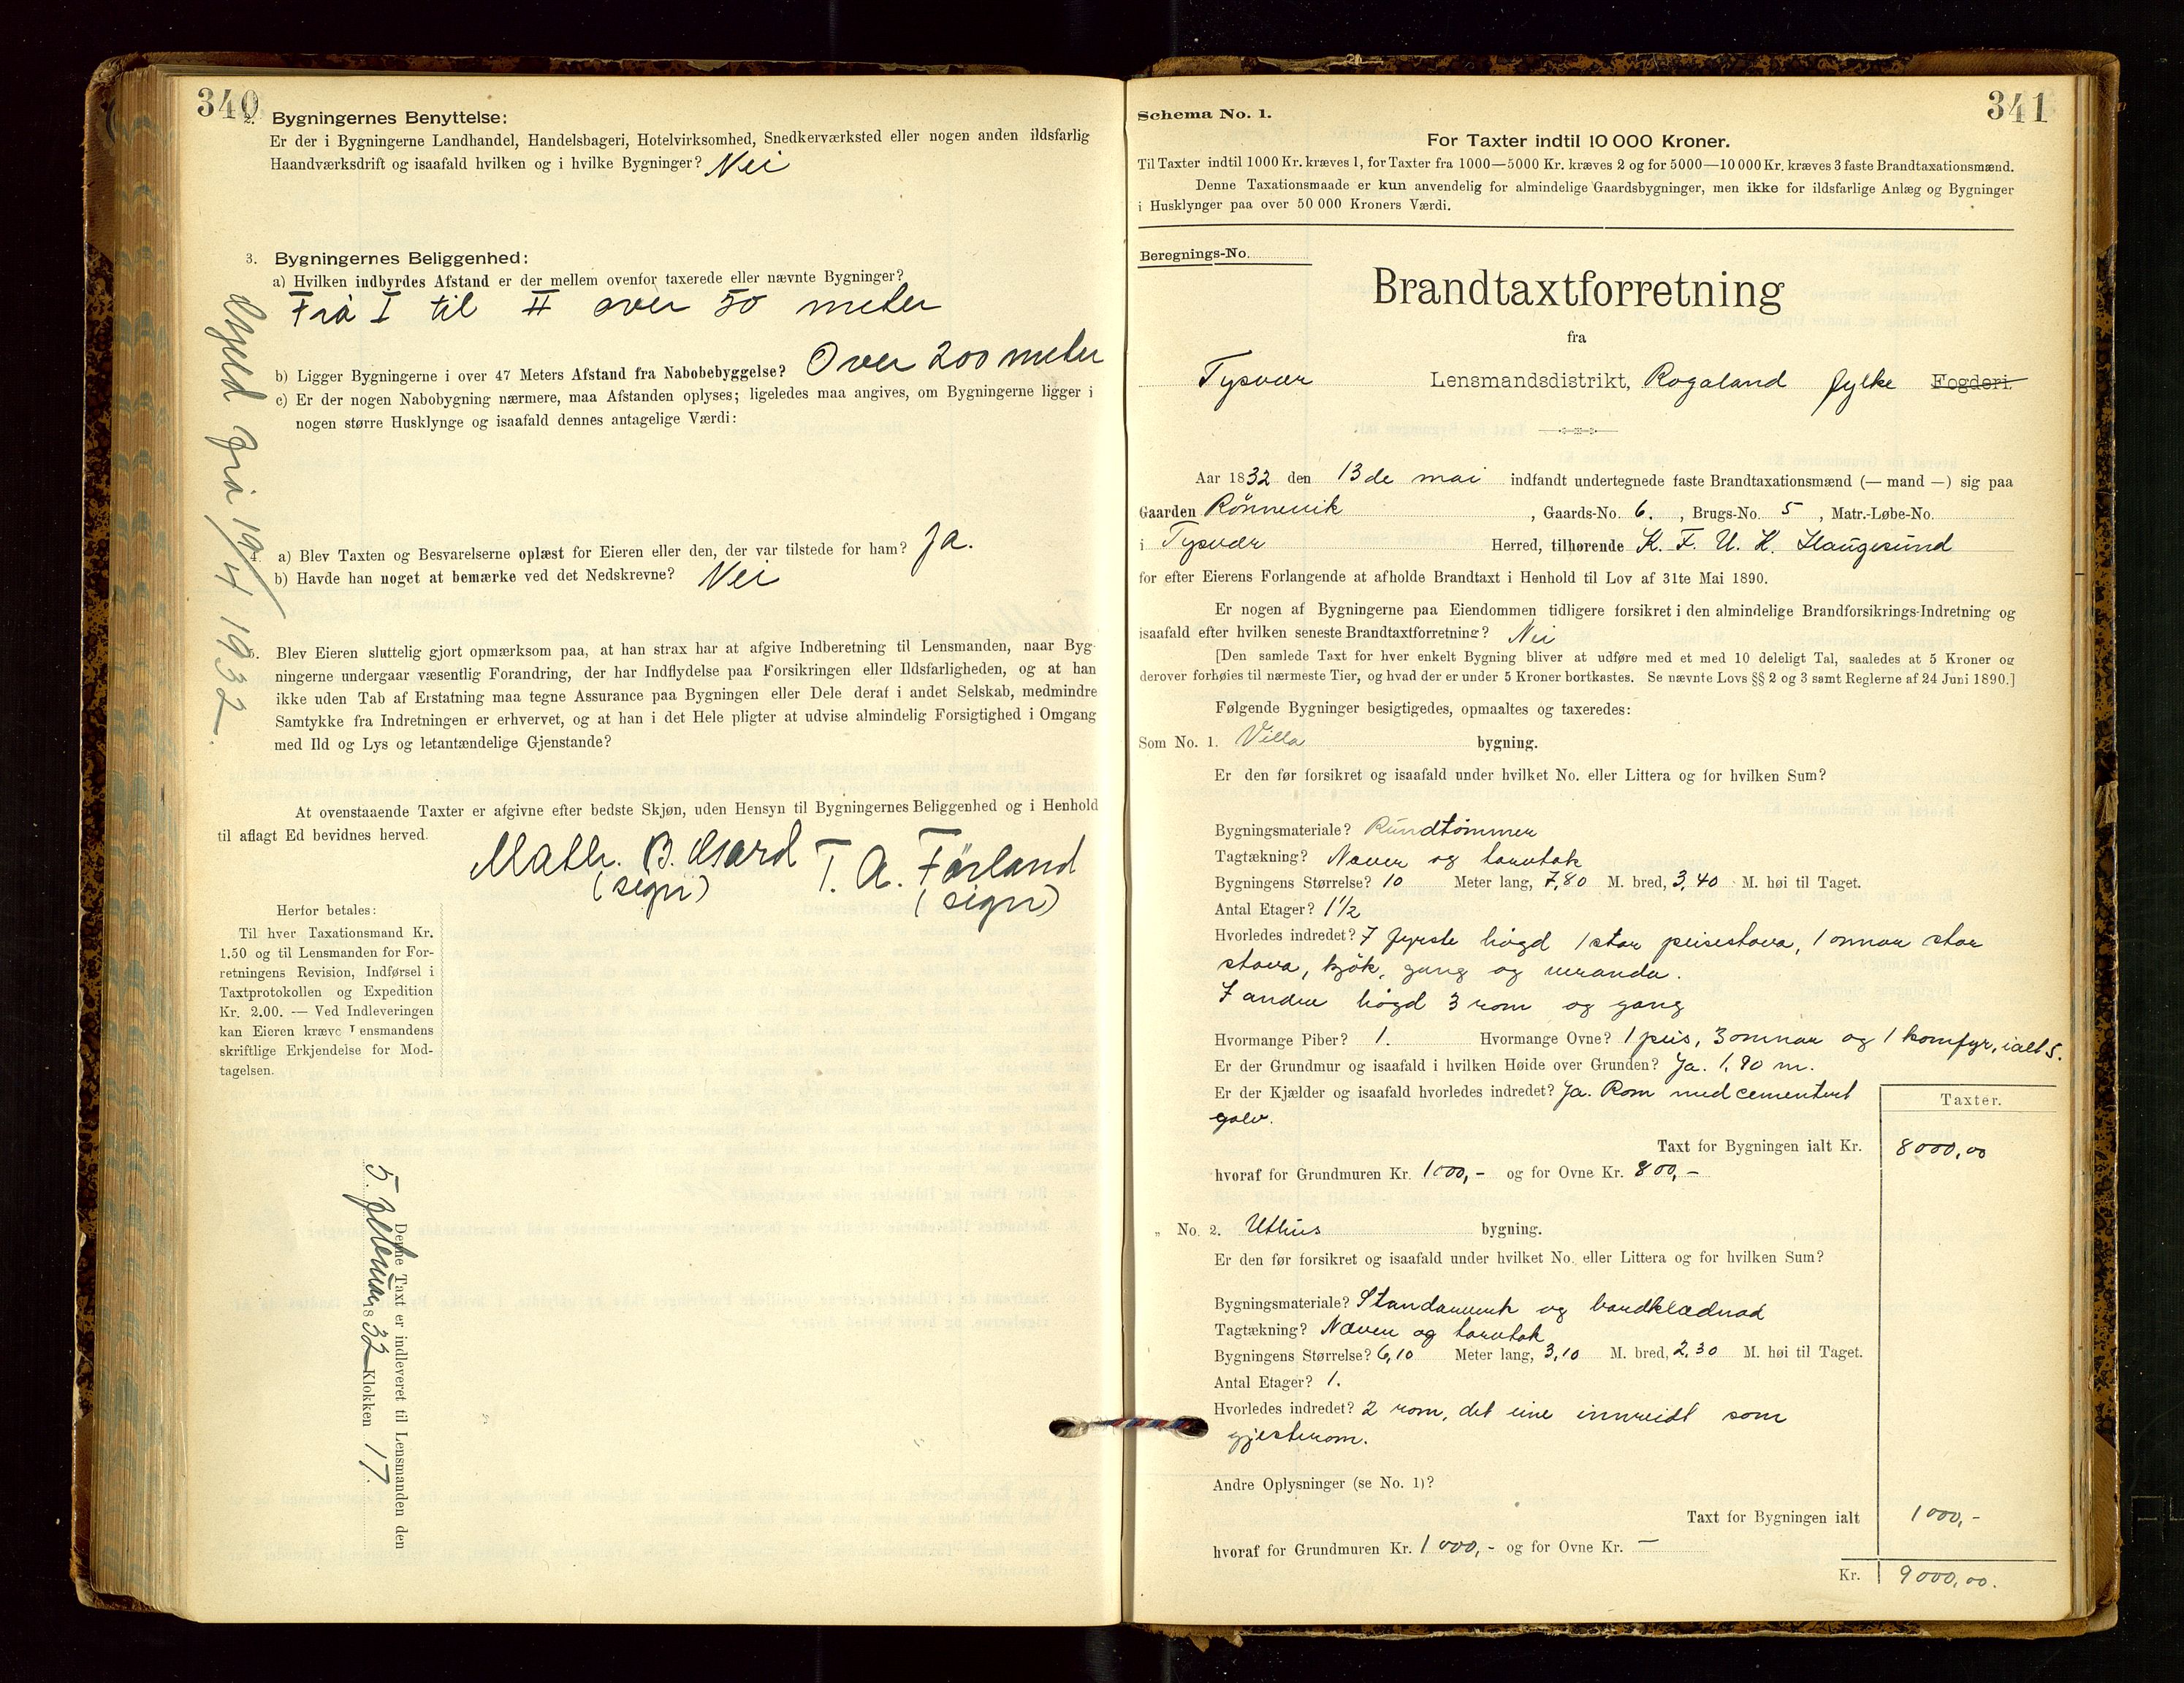 340
2. Bygningernes Benyttelse:
Er der i Bygningerne Landhandel, Handelsbageri, Hotelvirksomhed, Snedkerværksted eller nogen anden ildsfarlig
Haandværksdrift og isaafald hvilken og i hvilke Bygninger? Nei
3. Bygningernes Beliggenhed:
a) Hvilken indbyrdes Afstand er der mellem ovenfor taxerede eller nævnte Bygninger?
Frå I til II over 50 meter
b) Ligger Bygningerne i over 47 Meters Afstand fra Nabobebyggelse? Over 200 meter
c) Er der nogen Nabobygning nærmere, maa Afstanden oplyses; ligeledes maa angives, om Bygningerne ligger i
nogen større Husklynge og isaafald dennes antagelige Værdi:
4. a) Blev Taxten og Besvarelserne oplæst for Eieren eller den, der var tilstede for ham? Ja.
b) Havde han noget at bemærke ved det Nedskrevne? Nei
5. Blev Eieren sluttelig gjort opmærksom paa, at han strax har at afgive Indberetning til Lensmanden, naar Byg-
ningerne undergaar væsentlig Forandring, der har Indflydelse paa Forsikringen eller Ildsfarligheden, og at han
ikke uden Tab af Erstatning maa tegne Assurance paa Bygningen eller Dele deraf i andet Selskab, medmindre
Samtykke fra Indretningen er erhvervet, og at han i det Hele pligter at udvise almindelig Forsigtighed i Omgang
med Ild og Lys og letantændelige Gjenstande?
At ovenstaaende Taxter er afgivne efter bedste Skjøn, uden Hensyn til Bygningernes Beliggenhed og i Henhold
til aflagt Ed bevidnes herved.
Math. B. T. A. Førland
(sign) (sign)
Herfor betales:
Til hver Taxationsmand Kr.
1.50 og til Lensmanden for For-
retningens Revision, Indførsel i
Taxtprotokollen og Expedition
Kr. 2.00. — Ved Indleveringen
kan Eieren kræve Lensmandens
skriftlige Erkjendelse for Mod-
tagelsen.
Denne Taxt er indleveret til Lensmanden den
5. februar 1832 Klokken 17.
Gjeld frå 19/4 1932.
341
Schema No. 1.
For Taxter indtil 10 000 Kroner.
Til Taxter indtil 1000 Kr. kræves 1, for Taxter fra 1000—5000 Kr. kræves 2 og for 5000—10 000 Kr. kræves 3 faste Brandtaxationsmænd.
Denne Taxationsmaade er kun anvendelig for almindelige Gaardsbygninger, men ikke for ildsfarlige Anlæg og Bygninger
i Husklynger paa over 50 000 Kroners Værdi.
Beregnings-No.
Brandtaxtforretning
fra
Tysvær Lensmandsdistrikt, Rogaland fylke Fogderi.
Aar 1832 den 13de mai indfandt undertegnede faste Brandtaxationsmænd (— mand —) sig paa
Gaarden Rönnevik, Gaards-No. 6., Brugs-No. 5, Matr.-Løbe-No.
i Tysvær Herred, tilhørende K. F. U. K. Haugesund
for efter Eierens Forlangende at afholde Brandtaxt i Henhold til Lov af 31te Mai 1890.
Er nogen af Bygningerne paa Eiendommen tidligere forsikret i den almindelige Brandforsikrings-Indretning og
isaafald efter hvilken seneste Brandtaxtforretning? Nei
[Den samlede Taxt for hver enkelt Bygning bliver at udføre med et med 10 deleligt Tal, saaledes at 5 Kroner og
derover forhøies til nærmeste Tier, og hvad der er under 5 Kroner bortkastes. Se nævnte Lovs §§ 2 og 3 samt Reglerne af 24 Juni 1890.]
Følgende Bygninger besigtigedes, opmaaltes og taxeredes:
Som No. 1. Villa bygning.
Er den før forsikret og isaafald under hvilket No. eller Littera og for hvilken Sum?
Bygningsmateriale? Rundtömmer
Tagtækning? Næver og torvtak
Bygningens Størrelse? 10 Meter lang, 7,80 M. bred, 3,40 M. høi til Taget.
Antal Etager? 1½
Hvorledes indredet? I fyrste högd 1 stor peisestova, 1 onnor stor
stova, kjök, gang og veranda.
I andre högd 3 rom og gang
Hvormange Piber? 1. Hvormange Ovne? 1 peis, 3 omnar og 1 komfyr, ialt 5.
Er der Grundmur og isaafald i hvilken Høide over Grunden? Ja. 1,90 m.
Er der Kjælder og isaafald hvorledes indredet? Ja. Rom med cementert
golv.
Taxter.
Taxt for Bygningen ialt Kr. 8000,00
hvoraf for Grundmuren Kr. 1000,- og for Ovne Kr. 800,-
„ No. 2. Uthus bygning.
Er den før forsikret og isaafald under hvilket No. eller Littera og for hvilken Sum?
Bygningsmateriale? Standarverk og bordklædnad
Tagtækning? Næver og torvtak
Bygningens Størrelse? 6,10 Meter lang, 3,10 M. bred, 2,30 M. høi til Taget.
Antal Etager? 1.
Hvorledes indredet? 2 rom, det eine innreidt som
gjesterom.
Andre Oplysninger (se No. 1)?
Taxt for Bygningen ialt 1000,-
hvoraf for Grundmuren Kr. 1000,- og for Ovne Kr. —
Kr. 9000,00.